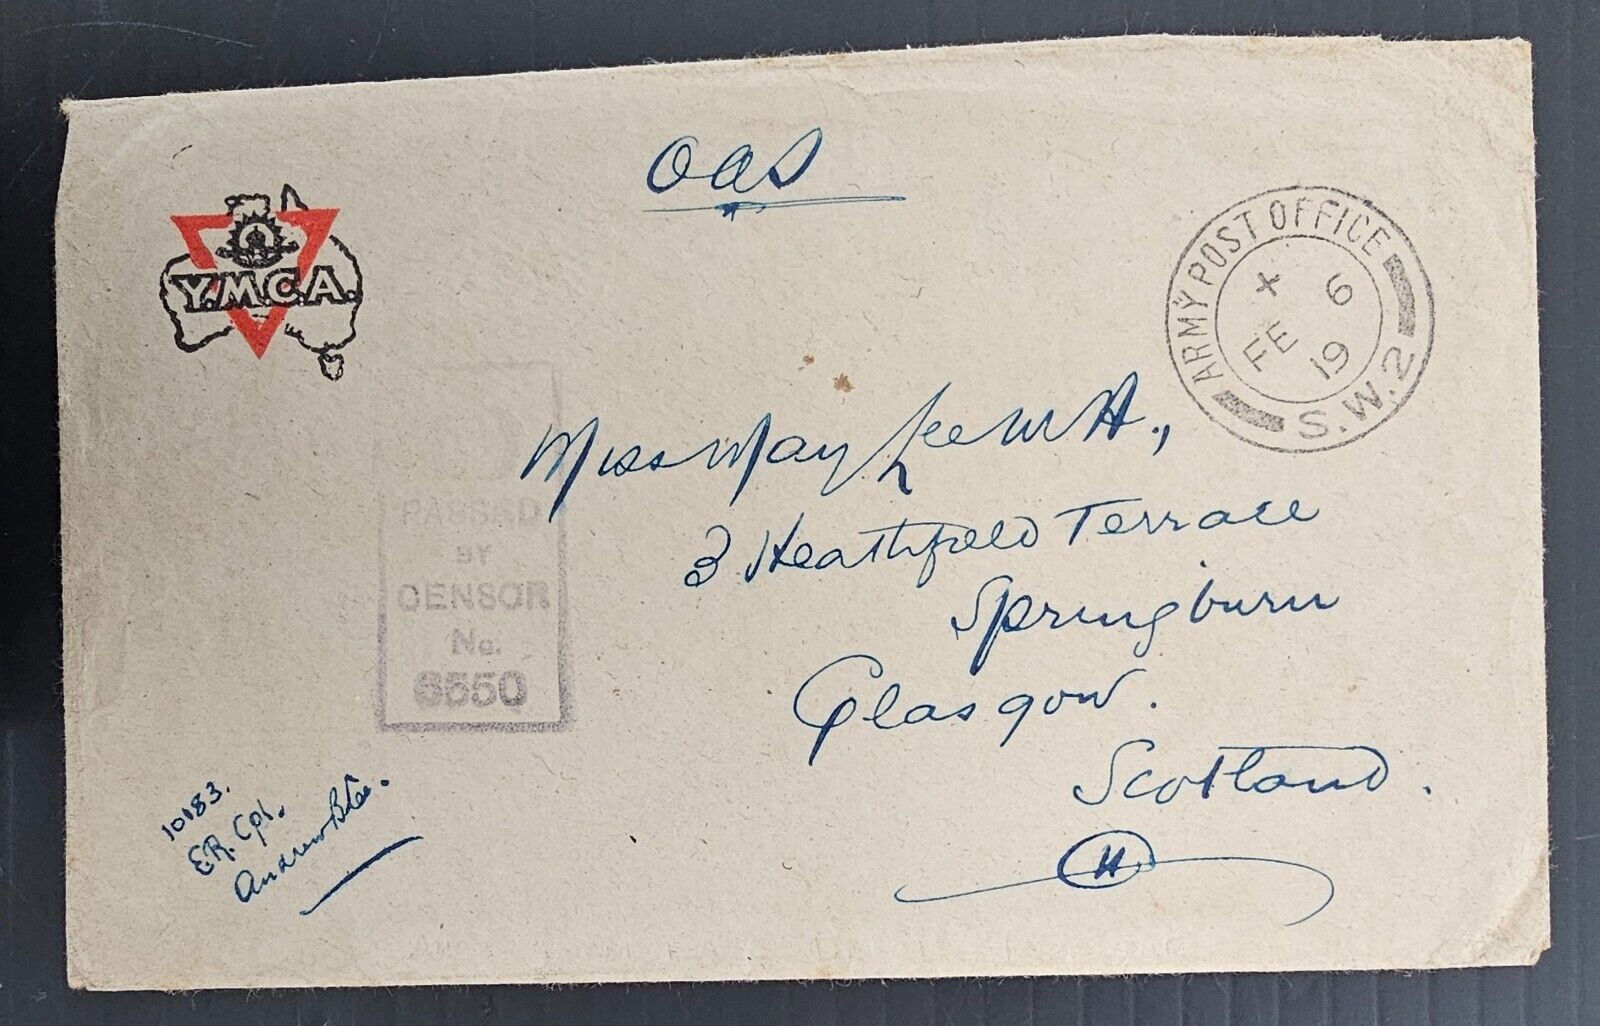 OAS
Y.M.C.A.
ARMY POST OFFICE
X 6
FE
19
S.W.2
Miss May Lee
3 Heathfield Terrace
Springburn
Glasgow.
Scotland.
PASSED
BY
CENSOR
No.
6550
10183.
E.R. Cpl.
Andrew
H